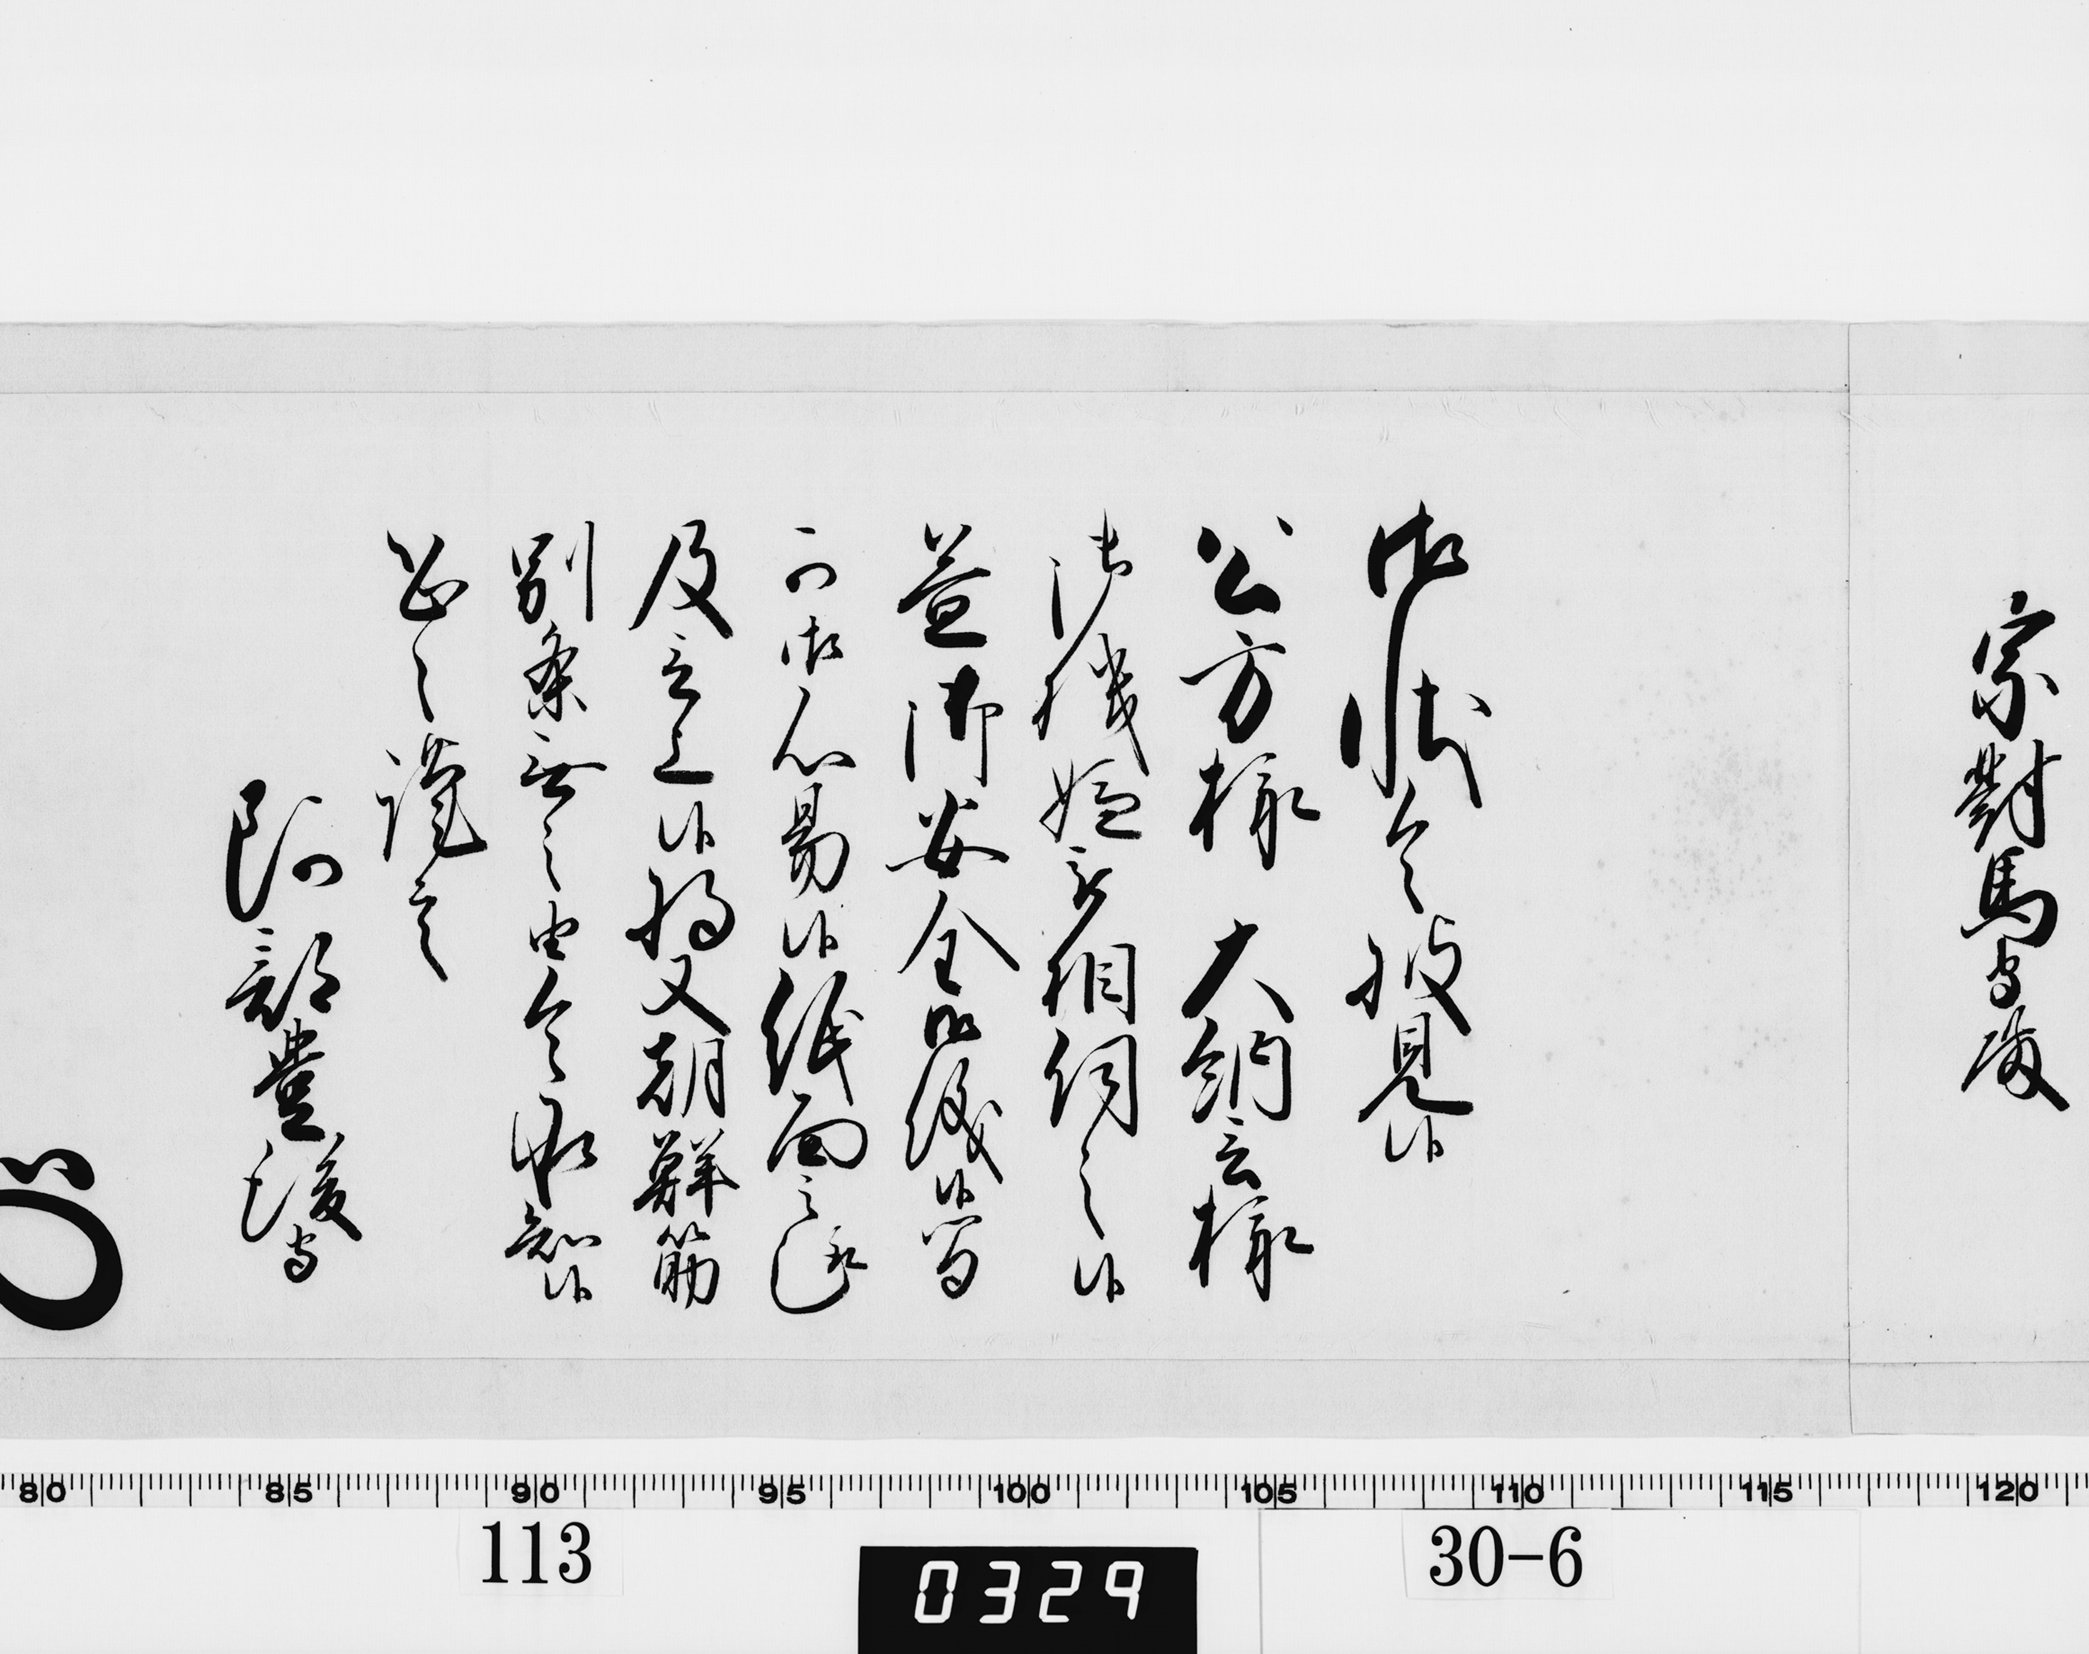 宗對馬守殿
御状令披見候
公方様 大納言様
御機嫌被相伺之候
益御安全御儀候間
可御心易候紙面之趣
及言上候将又朝鮮筋
別条無之由令承知候
恐々謹言
阿部豊後守
80 85 90 95 100 105 110 115 120
113
30-6
0329